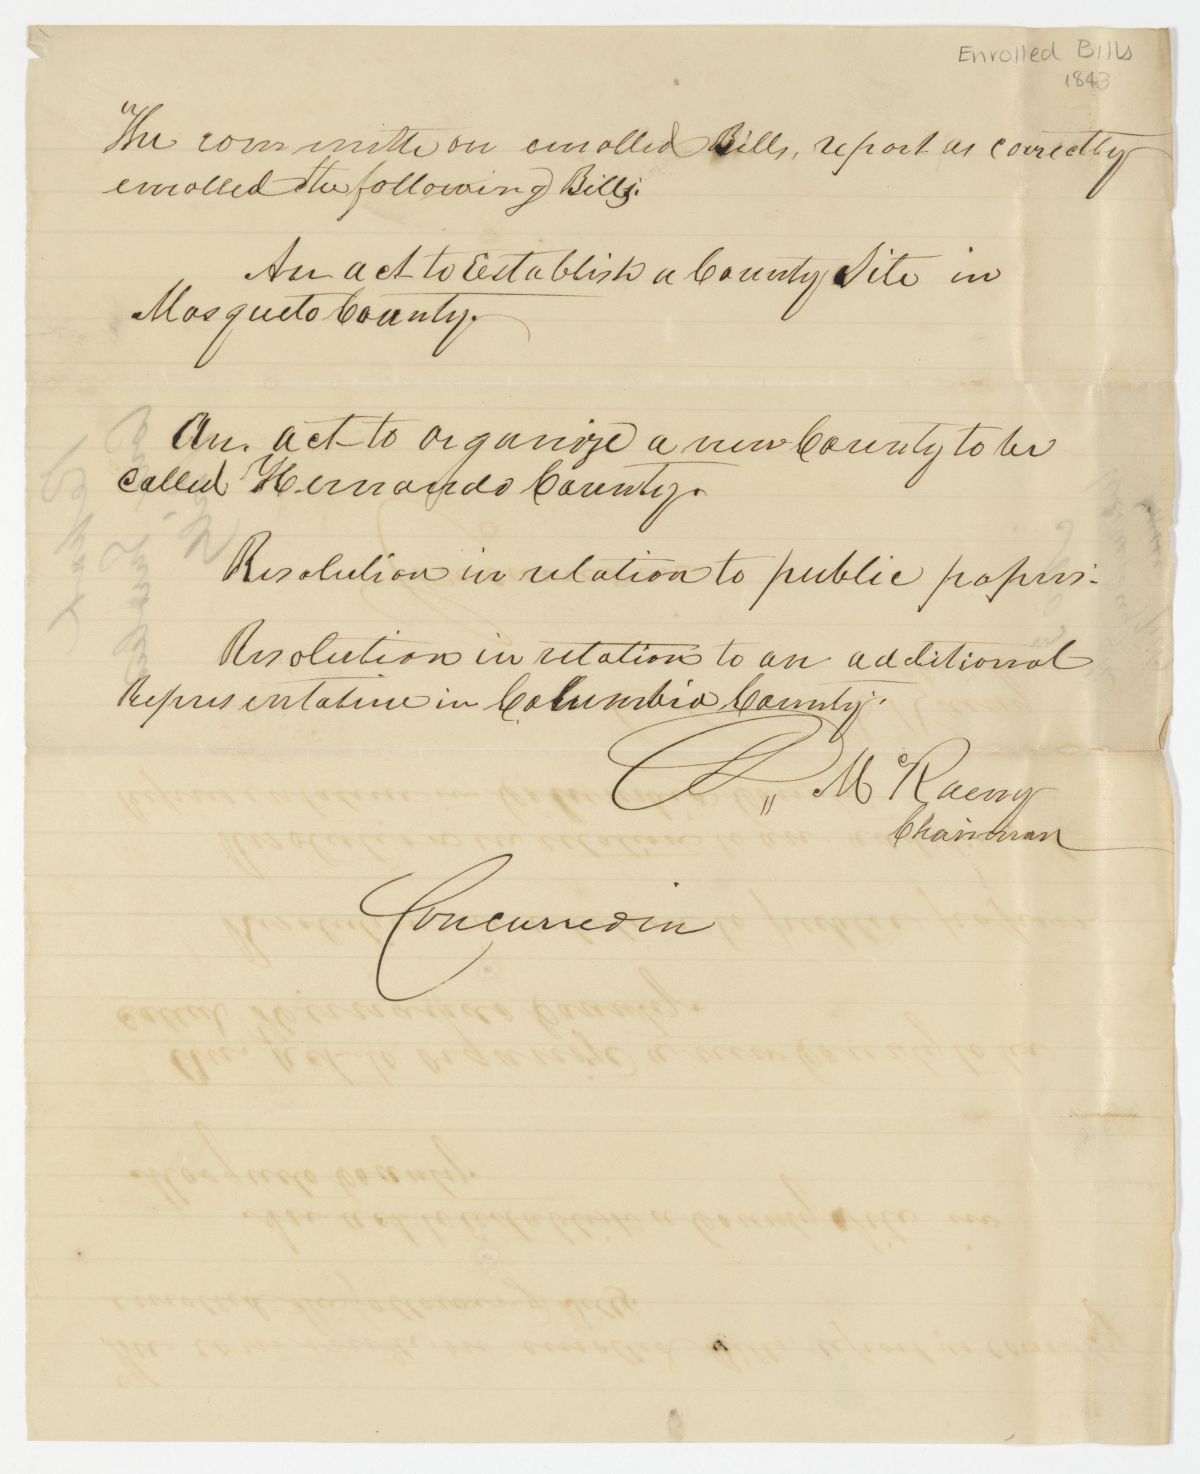 Enrolled Bills
1843
The committe on enrolled Bills, report as correctly
enrolled the following Bills.
An act to Establish a County Site in
Mosqueto County.
An. act to organize a new County to be
called Hernando County.
Resolution in relation to public papers.
Resolution in relation to an additional
Representative in Columbia County.
Mc Raeny
Chairman
Concurred in